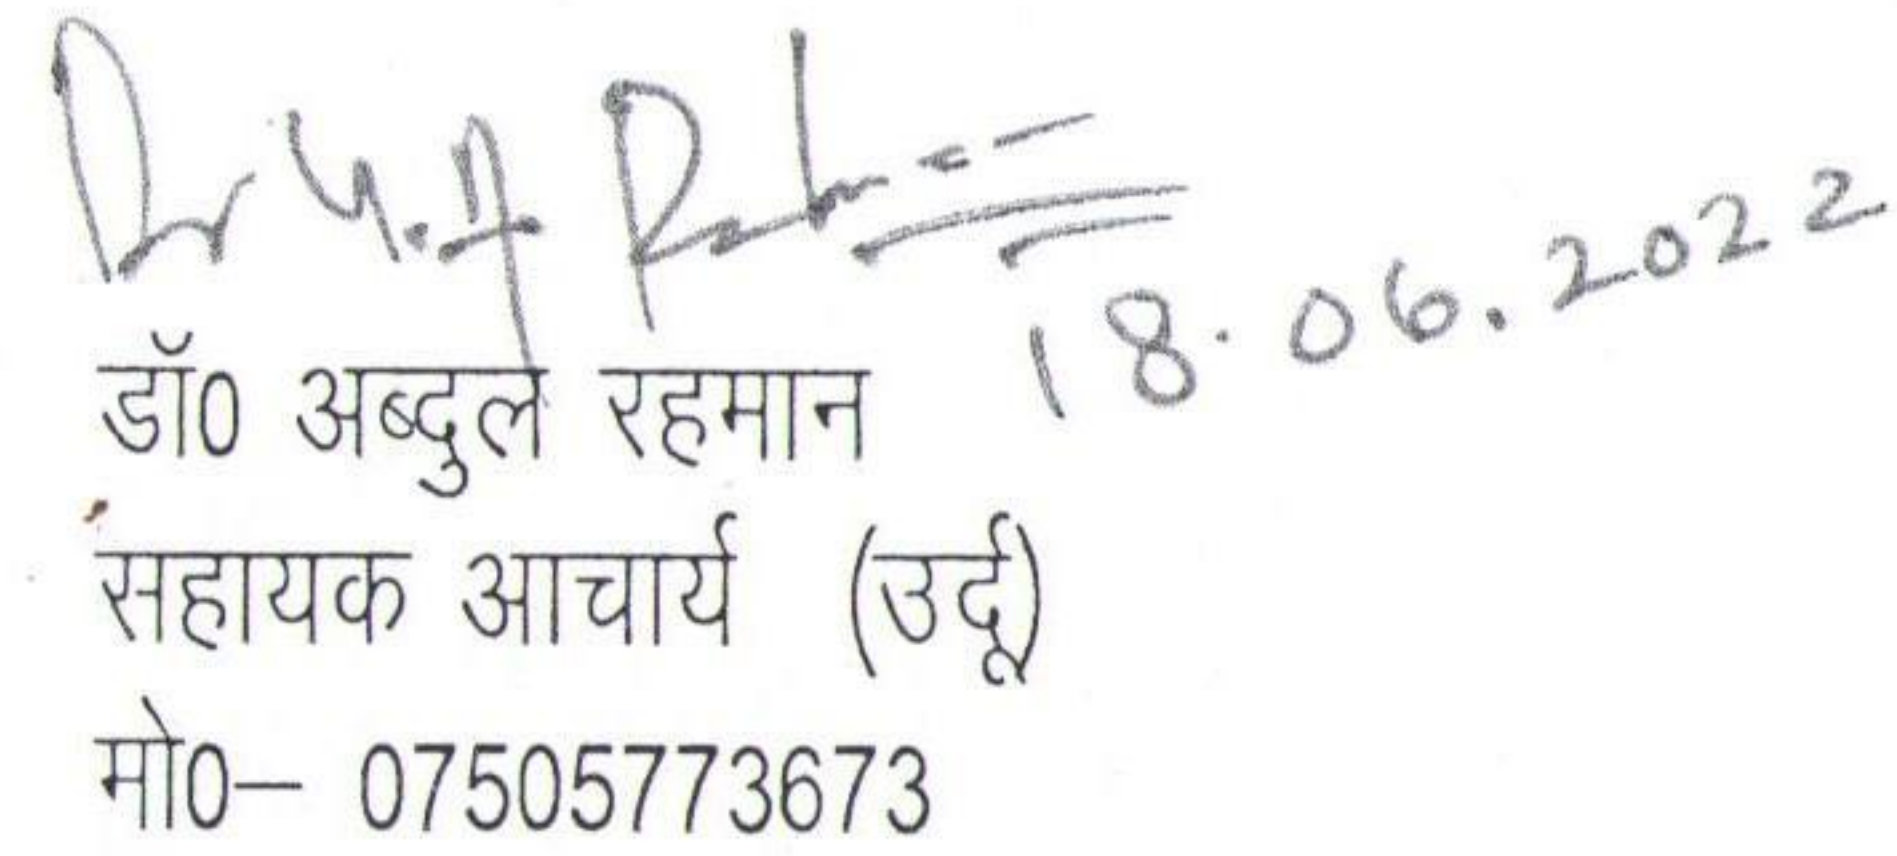 18.06.2022
डॉ0 अब्दुल रहमान
सहायक आचार्य (उर्दू)
मो0– 07505773673